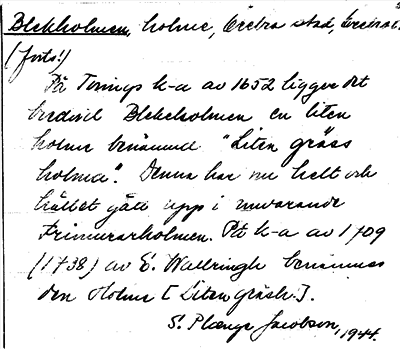 Blekholmen, holme, Örebro stad, Örebro l.
(forts.)
På Tornings k-a av 1652 ligger det
bredvid Blekeholmen en liten
holme benämnd "Liten gräss
holma". Denna har nu helt och
hållet gått upp i nuvarande
Frimurarholmen. På k-a av 1709
(1738) av E. Wallringh benämnes
den Holme [Liten gräsh.].
S. Plænge Jacobson, 1944.